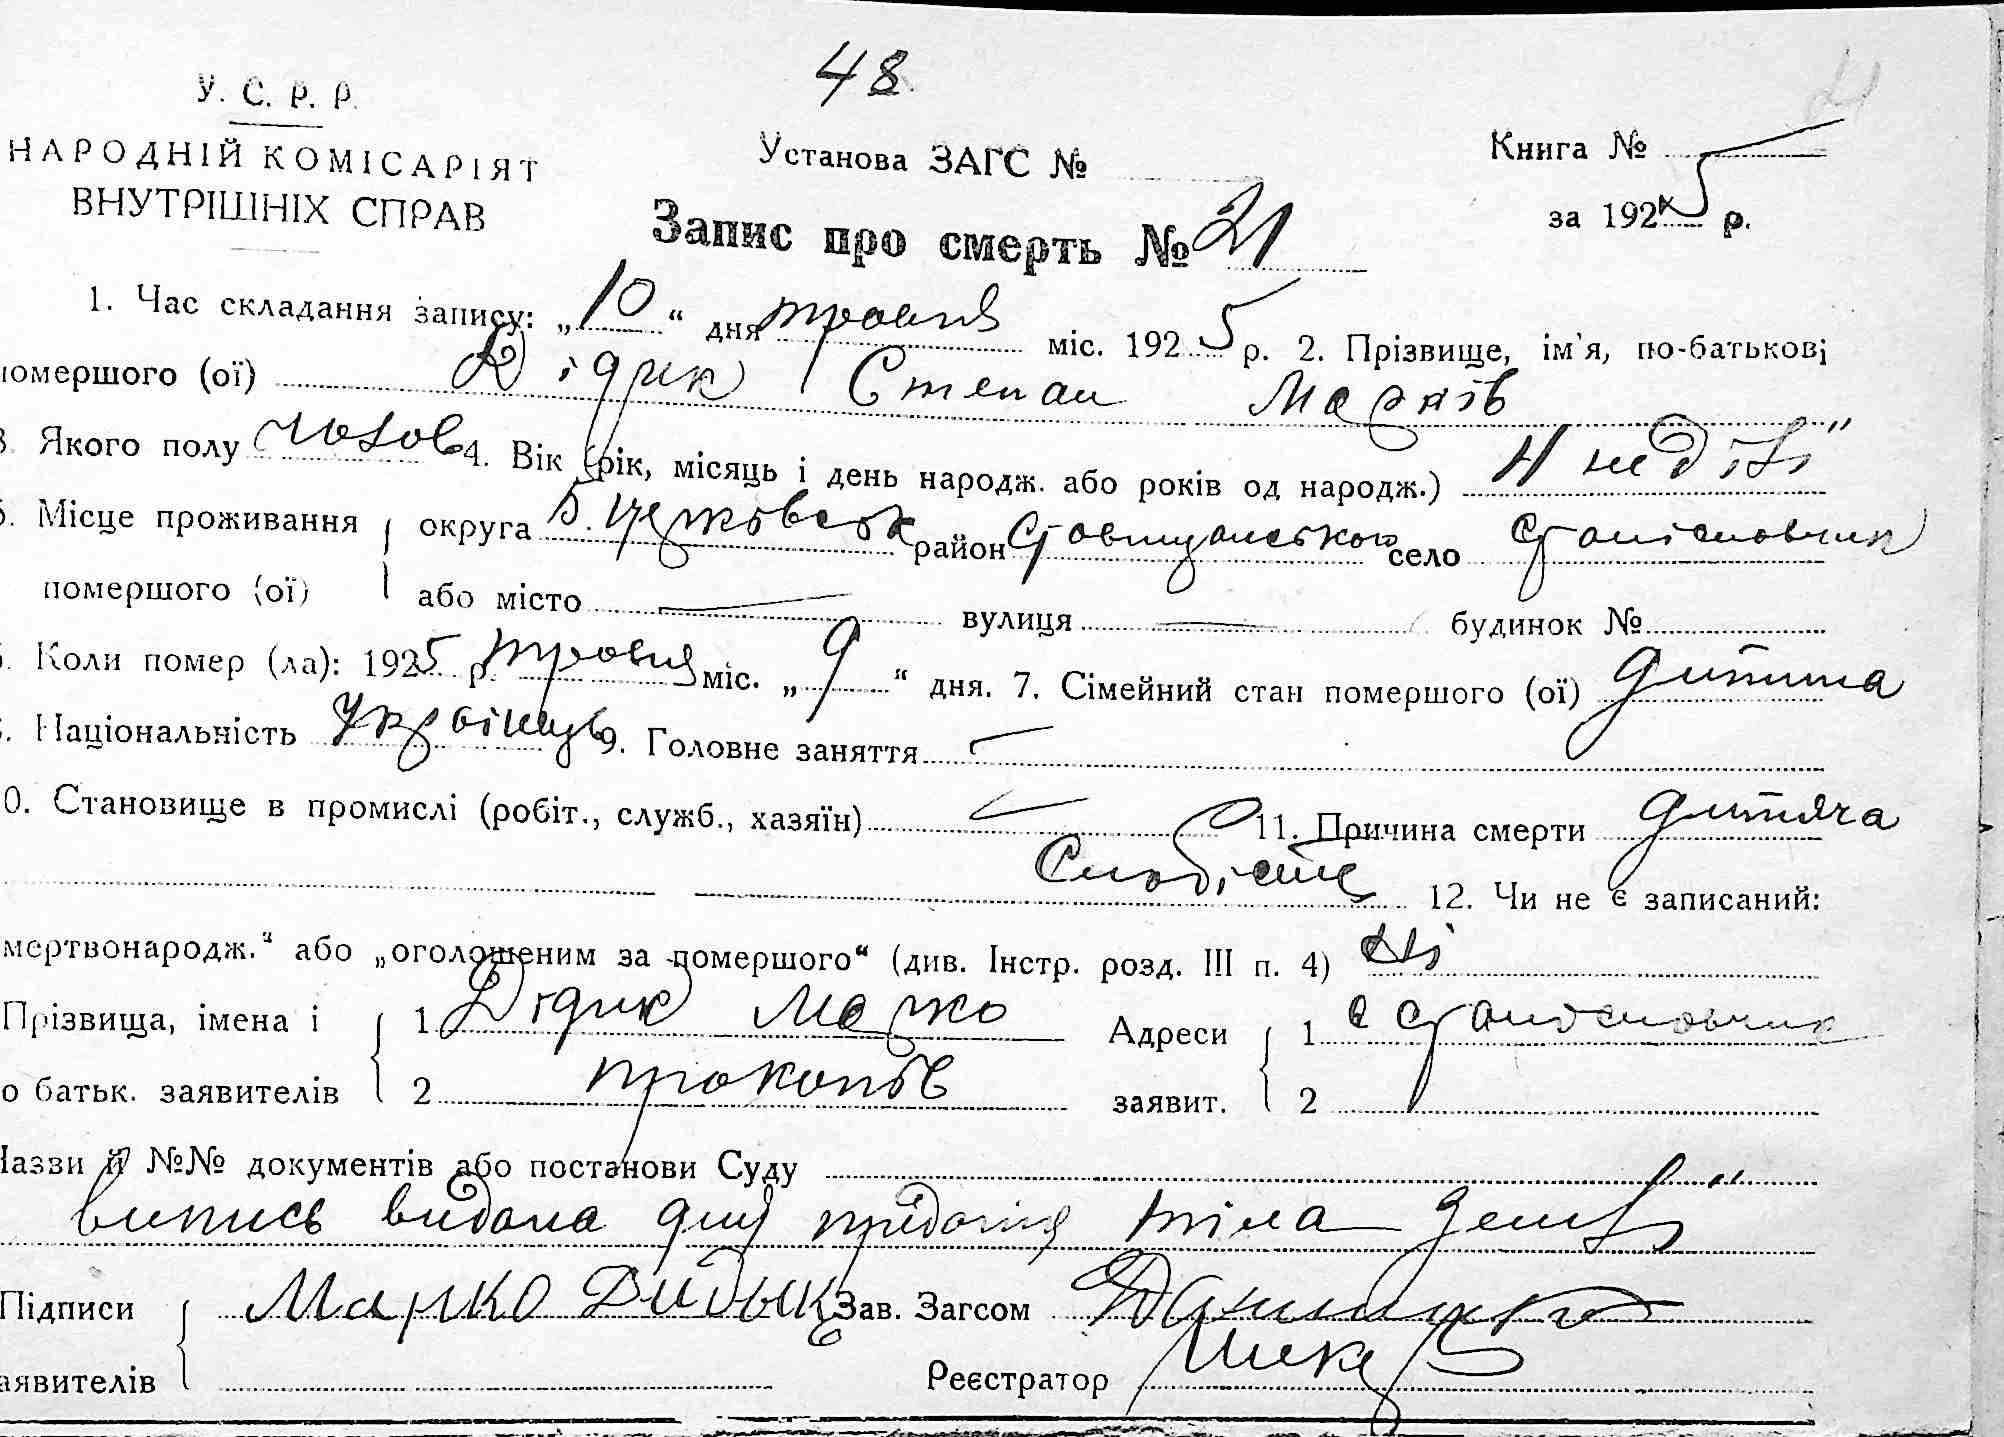 48
У. С. Р. Р.
НАРОДНІЙ КОМІСАРІЯТ
ВНУТРІШНІХ СПРАВ
Установа ЗАГС №
Книга №
за 1925 р.
Запис про смерть № 21
1. Час складання запису: „10“ дня травня міс. 1925 р. 2. Прізвище, ім'я, по-батькові
помершого (ої) Дідик Степан Марків
3. Якого полу чолов 4. Вік (рік, місяць і день народж. або років од народж.) 4 неділі
5. Місце проживання округа Б. Церковськ район Ставищанського село Станіславчик
помершого (ої) або місто вулиця будинок №
6. Коли помер (ла): 1925 р. травня міс. „9“ дня. 7. Сімейний стан помершого (ої) дитина
8. Національність Українець 9. Головне заняття
10. Становище в промислі (робіт., служб., хазяїн) 11. Причина смерти дитяча
слабість 12. Чи не є записаний:
мертвонародж.“ або „оголошеним за помершого“ (див. Інстр. розд. III п. 4) ні
Прізвища, імена і 1 Дідик Марко Адреси 1 с Станіславчик
по батьк. заявителів 2 Прокопів заявит. 2
Назви й №№ документів або постанови Суду
випись видана для придання тіла землі
Підписи Марко Дидык Зав. Загсом
заявителів Реєстратор